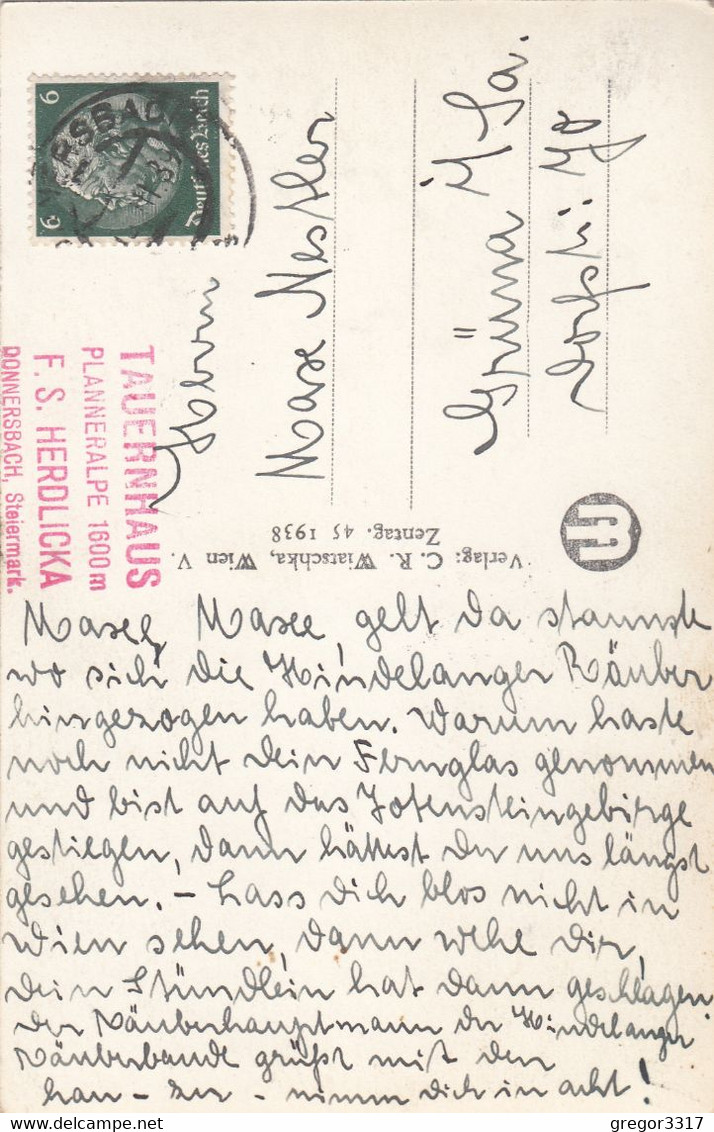 6 6
Deutsches Reich
TAUERNHAUS
PLANNERALPE 1600 m
F. S. HERDLICKA
DONNERSBACH, Steiermark.
Herrn
Maxe Nestler
Grüna i/Sa.
Verlag: C. R. Wiatschka, Wien V.
Zentag. 45 1938
Maxe, Maxe, gelt da staunste
wo sich die Hindelanger Räuber
hingezogen haben. Warum haste
noch nicht dein Fernglas genommen
und bist auf das Totensteingebirge
gestiegen, dann hättest du uns längst
gesehen. – Lass dich blos nicht in
Wien sehen, dann wehe dir,
dein Stündlein hat dann geschlagen.
Der Räuberhauptmann der Hindelanger
Räuberbande grüßt mit den
hau – zu – nimm dich in acht!
gregor3317